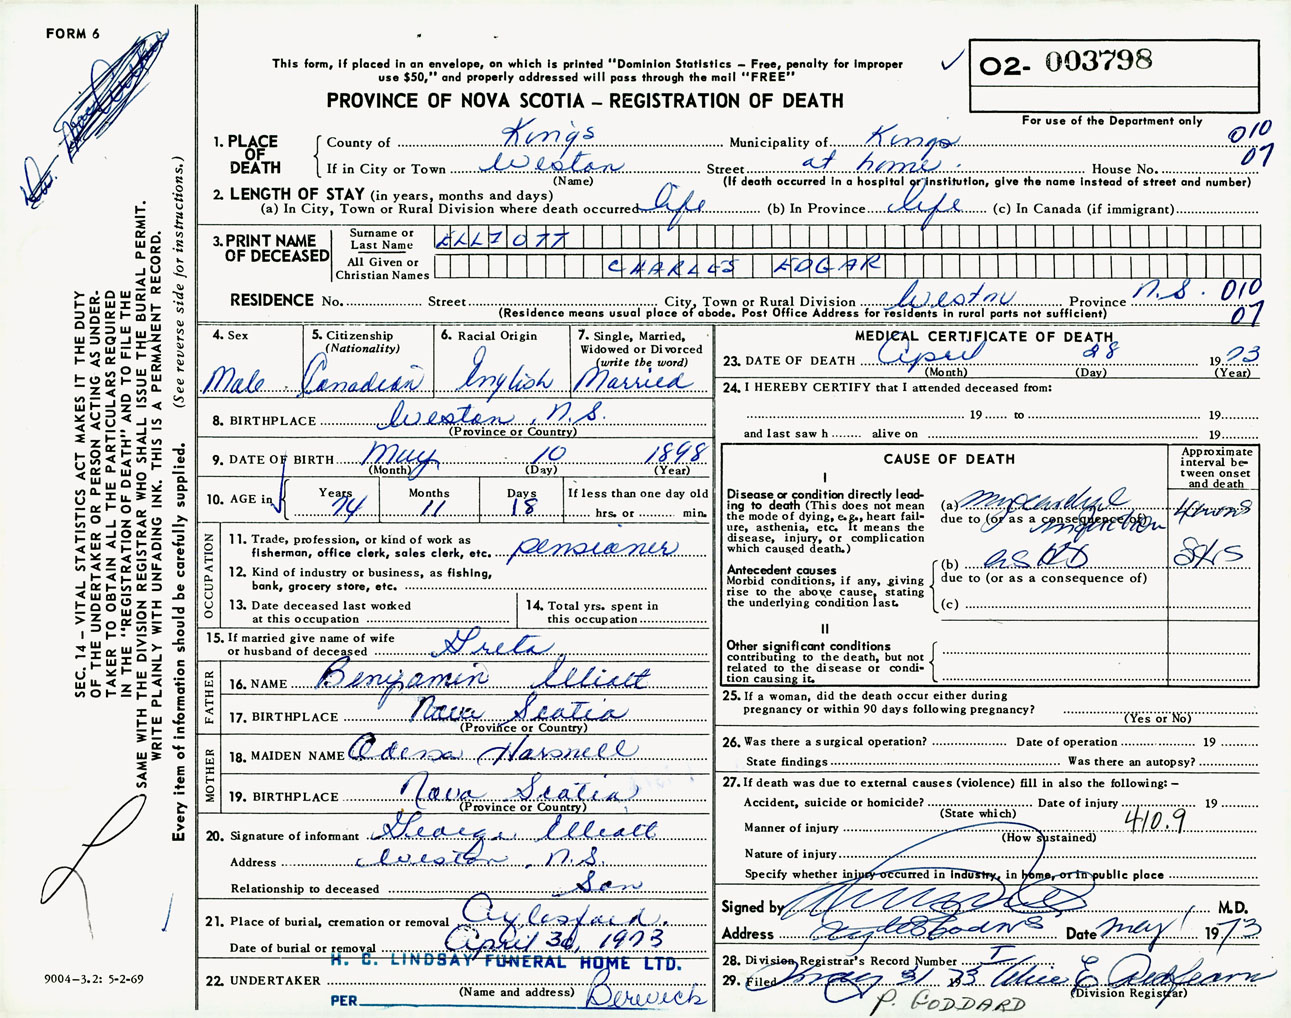 FORM 6
This form, if placed in an envelope, on which is printed "Dominion Statistics – Free, penalty for improper
use $50," and properly addressed will pass through the mail "FREE"
PROVINCE OF NOVA SCOTIA – REGISTRATION OF DEATH
02- 003798
For use of the Department only
010
07
1. PLACE OF DEATH
County of Kings Municipality of Kings
If in City or Town Weston Street at home. House No.
(Name) (If death occurred in a hospital or institution, give the name instead of street and number)
2. LENGTH OF STAY (in years, months and days)
(a) In City, Town or Rural Division where death occurred life (b) In Province life (c) In Canada (if immigrant)
3. PRINT NAME OF DECEASED
Surname or Last Name ELLIOTT
All Given or Christian Names CHARLES EDGAR
RESIDENCE No. Street City, Town or Rural Division Weston Province N.S. 010
(Residence means usual place of abode. Post Office Address for residents in rural parts not sufficient) 07
4. Sex
Male
5. Citizenship
(Nationality)
Canadian
6. Racial Origin
English
7. Single, Married,
Widowed or Divorced
(write the word)
Married
8. BIRTHPLACE Weston, N.S.
(Province or Country)
9. DATE OF BIRTH May 10 1898
(Month) (Day) (Year)
10. AGE in Years Months Days If less than one day old
74 11 18 hrs. or min.
OCCUPATION
11. Trade, profession, or kind of work as
fisherman, office clerk, sales clerk, etc. pensioner
12. Kind of industry or business, as fishing,
bank, grocery store, etc.
13. Date deceased last worked
at this occupation
14. Total yrs. spent in
this occupation
15. If married give name of wife
or husband of deceased Greta
FATHER
16. NAME Benjamin Elliott
17. BIRTHPLACE Nova Scotia
(Province or Country)
MOTHER
18. MAIDEN NAME Odessa
19. BIRTHPLACE Nova Scotia
(Province or Country)
20. Signature of informant George Elliott
Address Weston, N.S.
Relationship to deceased Son
21. Place of burial, cremation or removal Aylesford.
Date of burial or removal April 30, 1973
H. C. LINDSAY FUNERAL HOME LTD.
22. UNDERTAKER
(Name and address)
PER Berwick
MEDICAL CERTIFICATE OF DEATH
23. DATE OF DEATH April 28 1973
(Month) (Day) (Year)
24. I HEREBY CERTIFY that I attended deceased from:
19 to 19
and last saw h alive on 19
CAUSE OF DEATH
Approximate
interval be-
tween onset
and death
I
Disease or condition directly lead-
ing to death (This does not mean
the mode of dying, e.g., heart fail-
ure, asthenia, etc. It means the
disease, injury, or complication
which caused death.)
(a) myocardial
due to (or as a consequence of) infarction
Antecedent causes
Morbid conditions, if any, giving
rise to the above cause, stating
the underlying condition last.
(b)
due to (or as a consequence of)
(c)
II
Other significant conditions
contributing to the death, but not
related to the disease or condi-
tion causing it.
25. If a woman, did the death occur either during
pregnancy or within 90 days following pregnancy?
(Yes or No)
26. Was there a surgical operation? Date of operation 19
State findings Was there an autopsy?
27. If death was due to external causes (violence) fill in also the following: –
Accident, suicide or homicide? Date of injury 19
(State which)
Manner of injury 410.9
(How sustained)
Nature of injury
Specify whether injury occurred in industry, in home, or in public place
Signed by M.D.
Address Date May 1 1973
28. Division Registrar's Record Number
29. Filed May 31 1973
(Division Registrar)
P. GODDARD
SEC. 14 – VITAL STATISTICS ACT MAKES IT THE DUTY
OF THE UNDERTAKER OR PERSON ACTING AS UNDER-
TAKER TO OBTAIN ALL THE PARTICULARS REQUIRED
IN THE "REGISTRATION OF DEATH" AND TO FILE THE
SAME WITH THE DIVISION REGISTRAR WHO SHALL ISSUE THE BURIAL PERMIT.
WRITE PLAINLY WITH UNFADING INK. THIS IS A PERMANENT RECORD.
Every item of information should be carefully supplied. (See reverse side for instructions.)
9004–3.2: 5-2-69